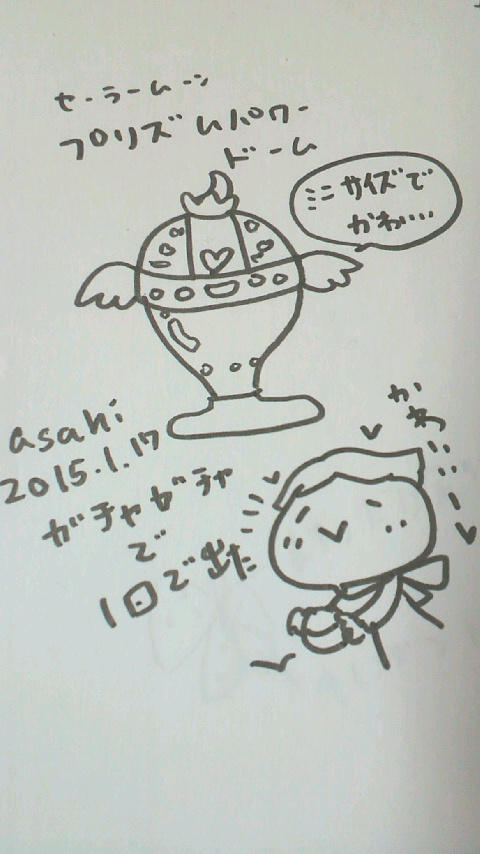 セーラームーン
プリズムパワー
ドーム
ミニサイズで
かわ‥‥
asahi
2015.1.17
ガチャガチャ
で
1日で出た
かわ‥‥